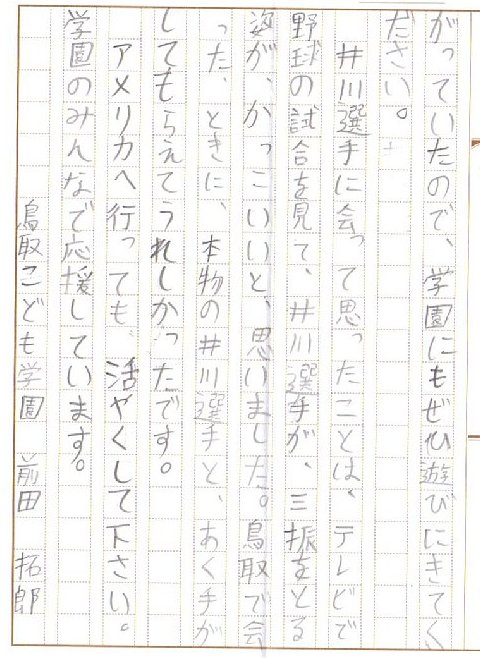 がっていたので、学園にもぜひ遊びにきてく
ださい。
井川選手に会って思ったことは、テレビで
野球の試合を見て、井川選手が、三振をとる
姿が、かっこいいと、思いました。鳥取で会
った、ときに、本物の井川選手と、あく手が
してもらえてうれしかったです。
アメリカへ行っても、活やくして下さい。
学園のみんなで応援しています。
鳥取こども学園 前田 拓郎